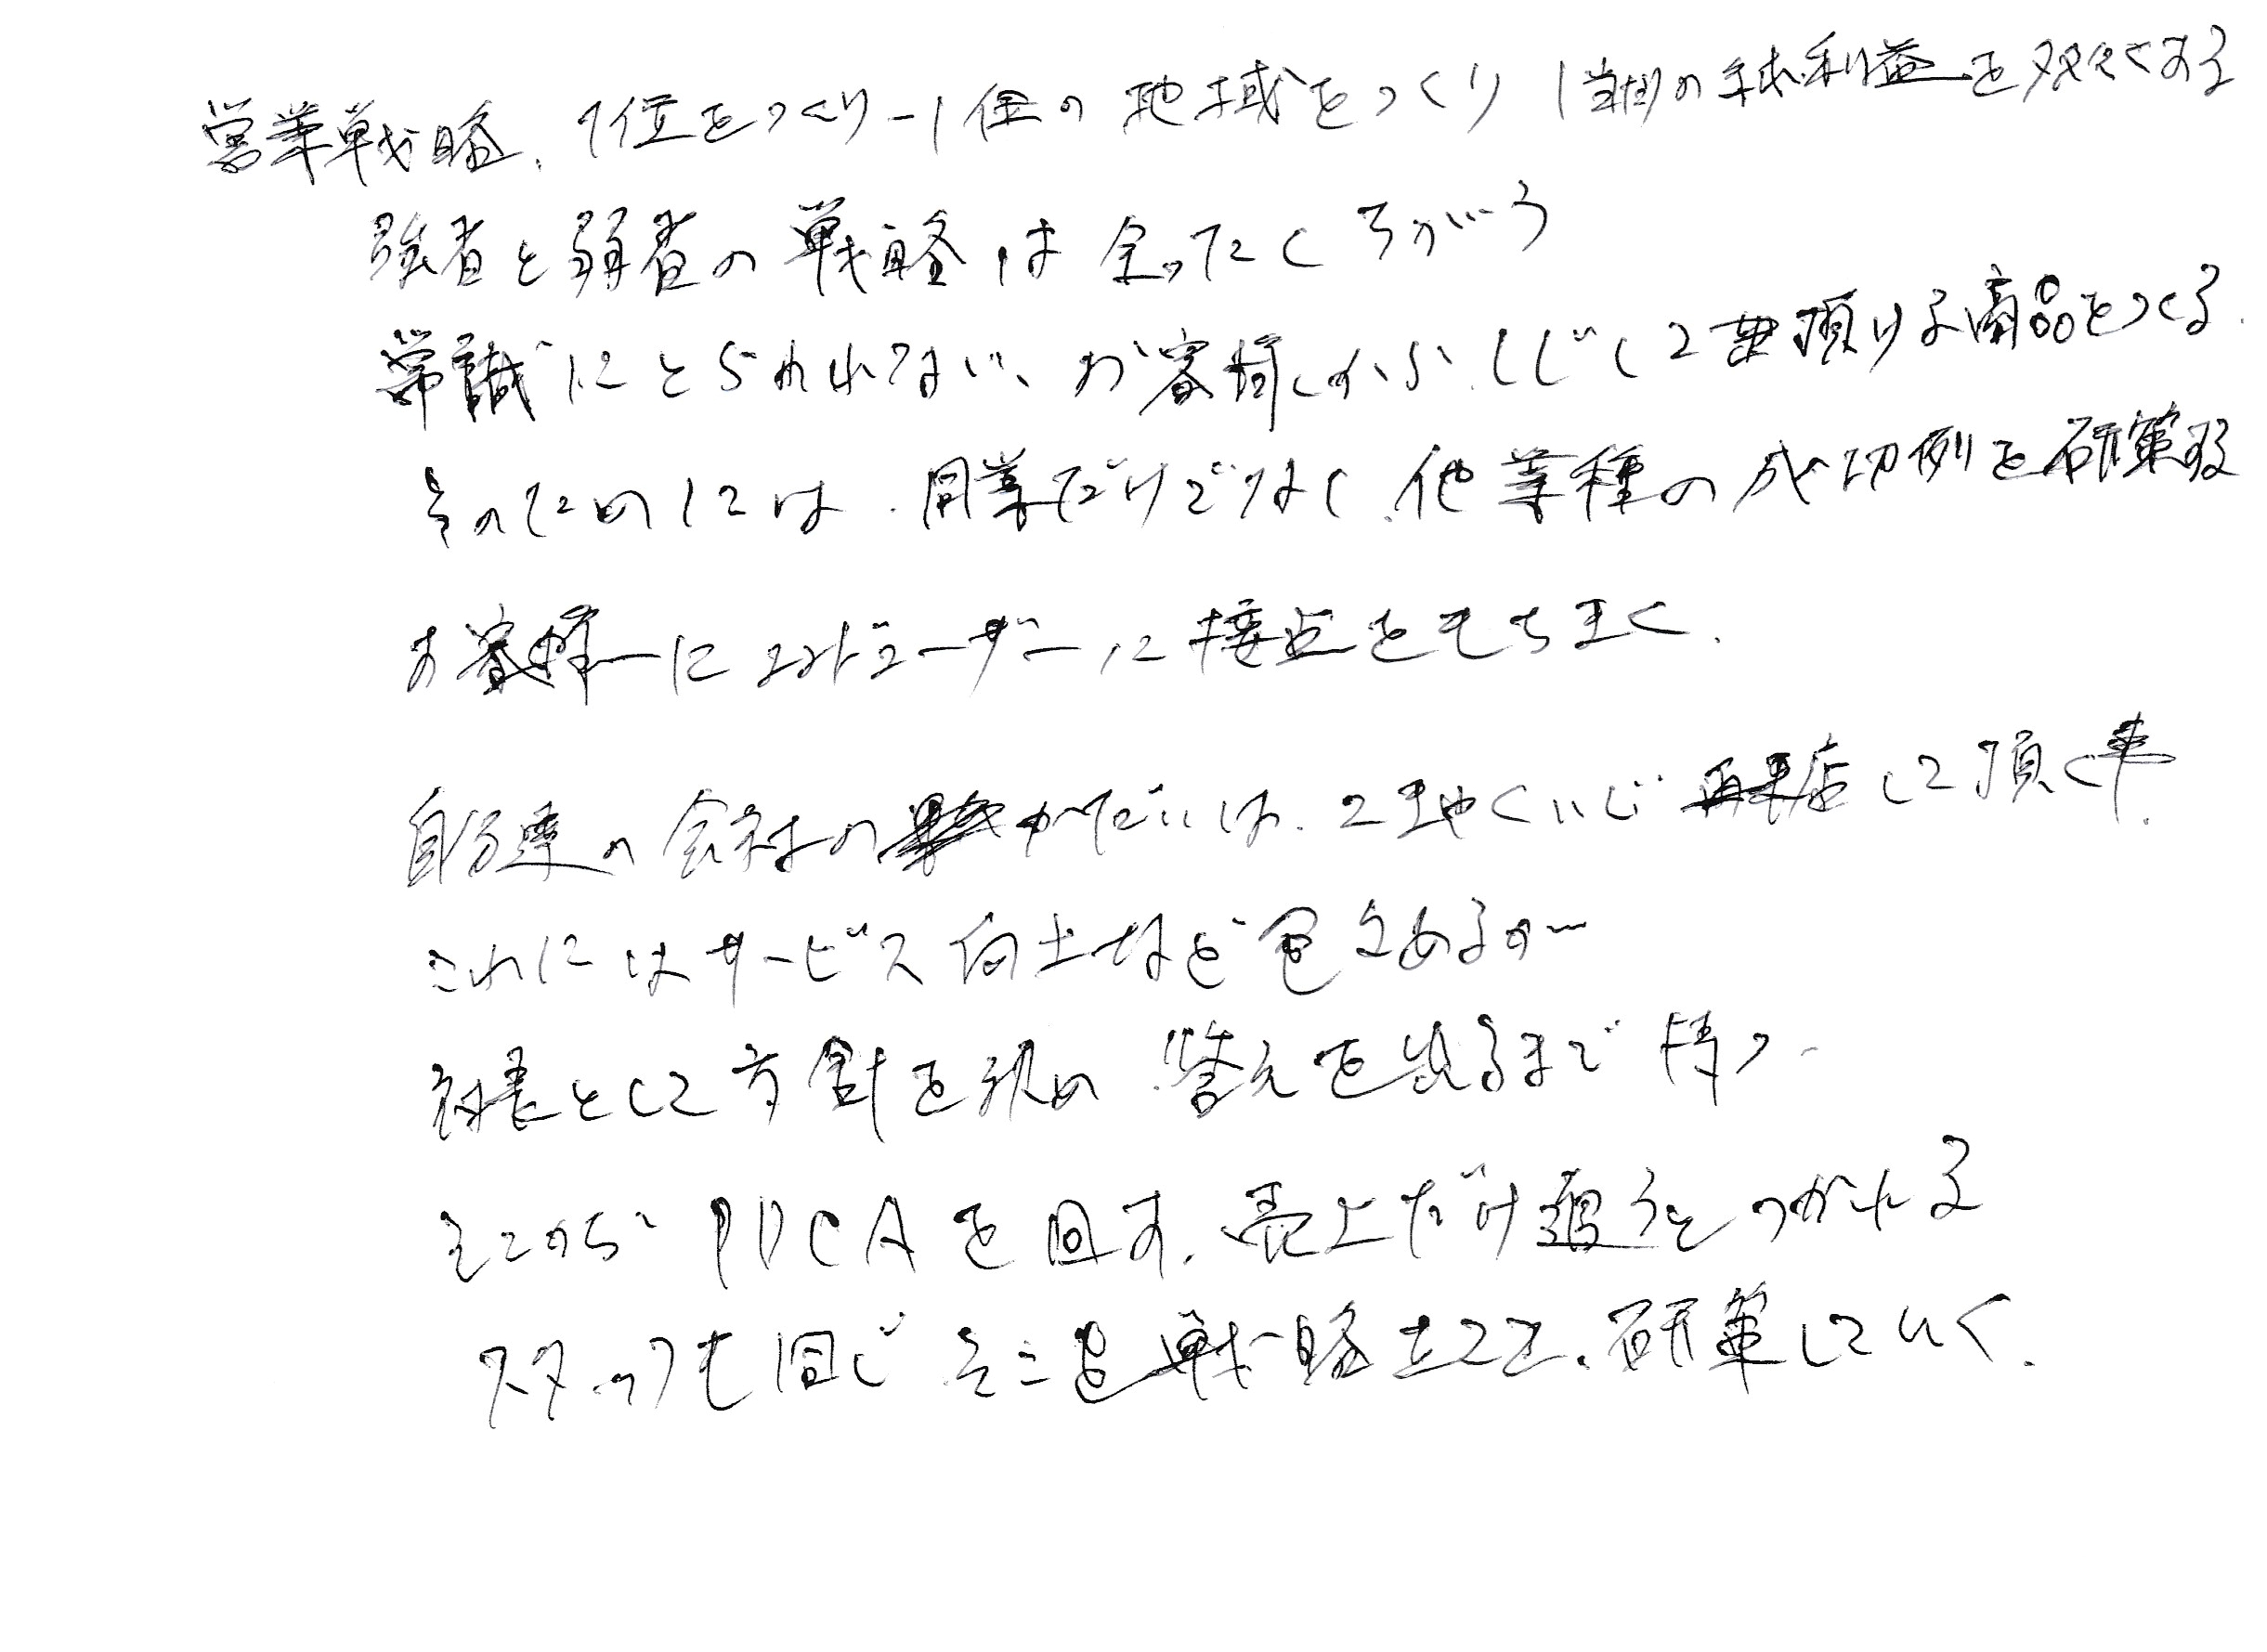 営業戦略、1位をつくり-1位の地域をつくり1当りの純利益を多くする
強者と弱者の戦略は全ったくちがう
常識にとらわれない、お客様から、して頂ける商品をつくる
そのためには、同業だけでなく、他業種の成功例を研究
お客様にエンドユーザーに接点をもち
自分達の会社のかだいは、再来店して頂く事.
これにはサービス向上など含めるが
社長として方針を決め 答えを出るまで待つ
そこから PDCAを回す、売上だけ追うとつかれる
スタッフも同じ そこも戦略立てて、研究していく.